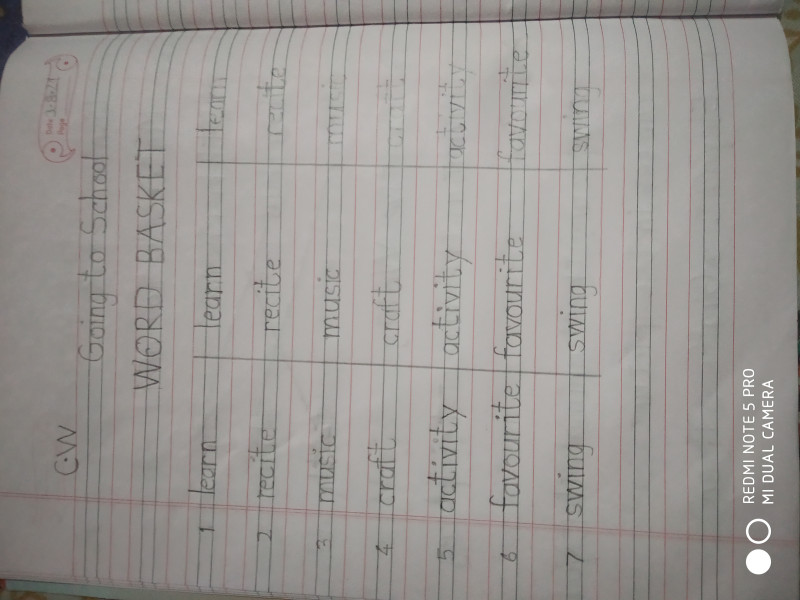 Date 1-8-21
Page
C.W
Going to School
WORD BASKET
1 learn learn learn
2 recite recite recite
3 music music music
4 craft craft craft
5 activity activity activity
6 favourite favourite favourite
7 swing swing swing
REDMI NOTE 5 PRO
MI DUAL CAMERA